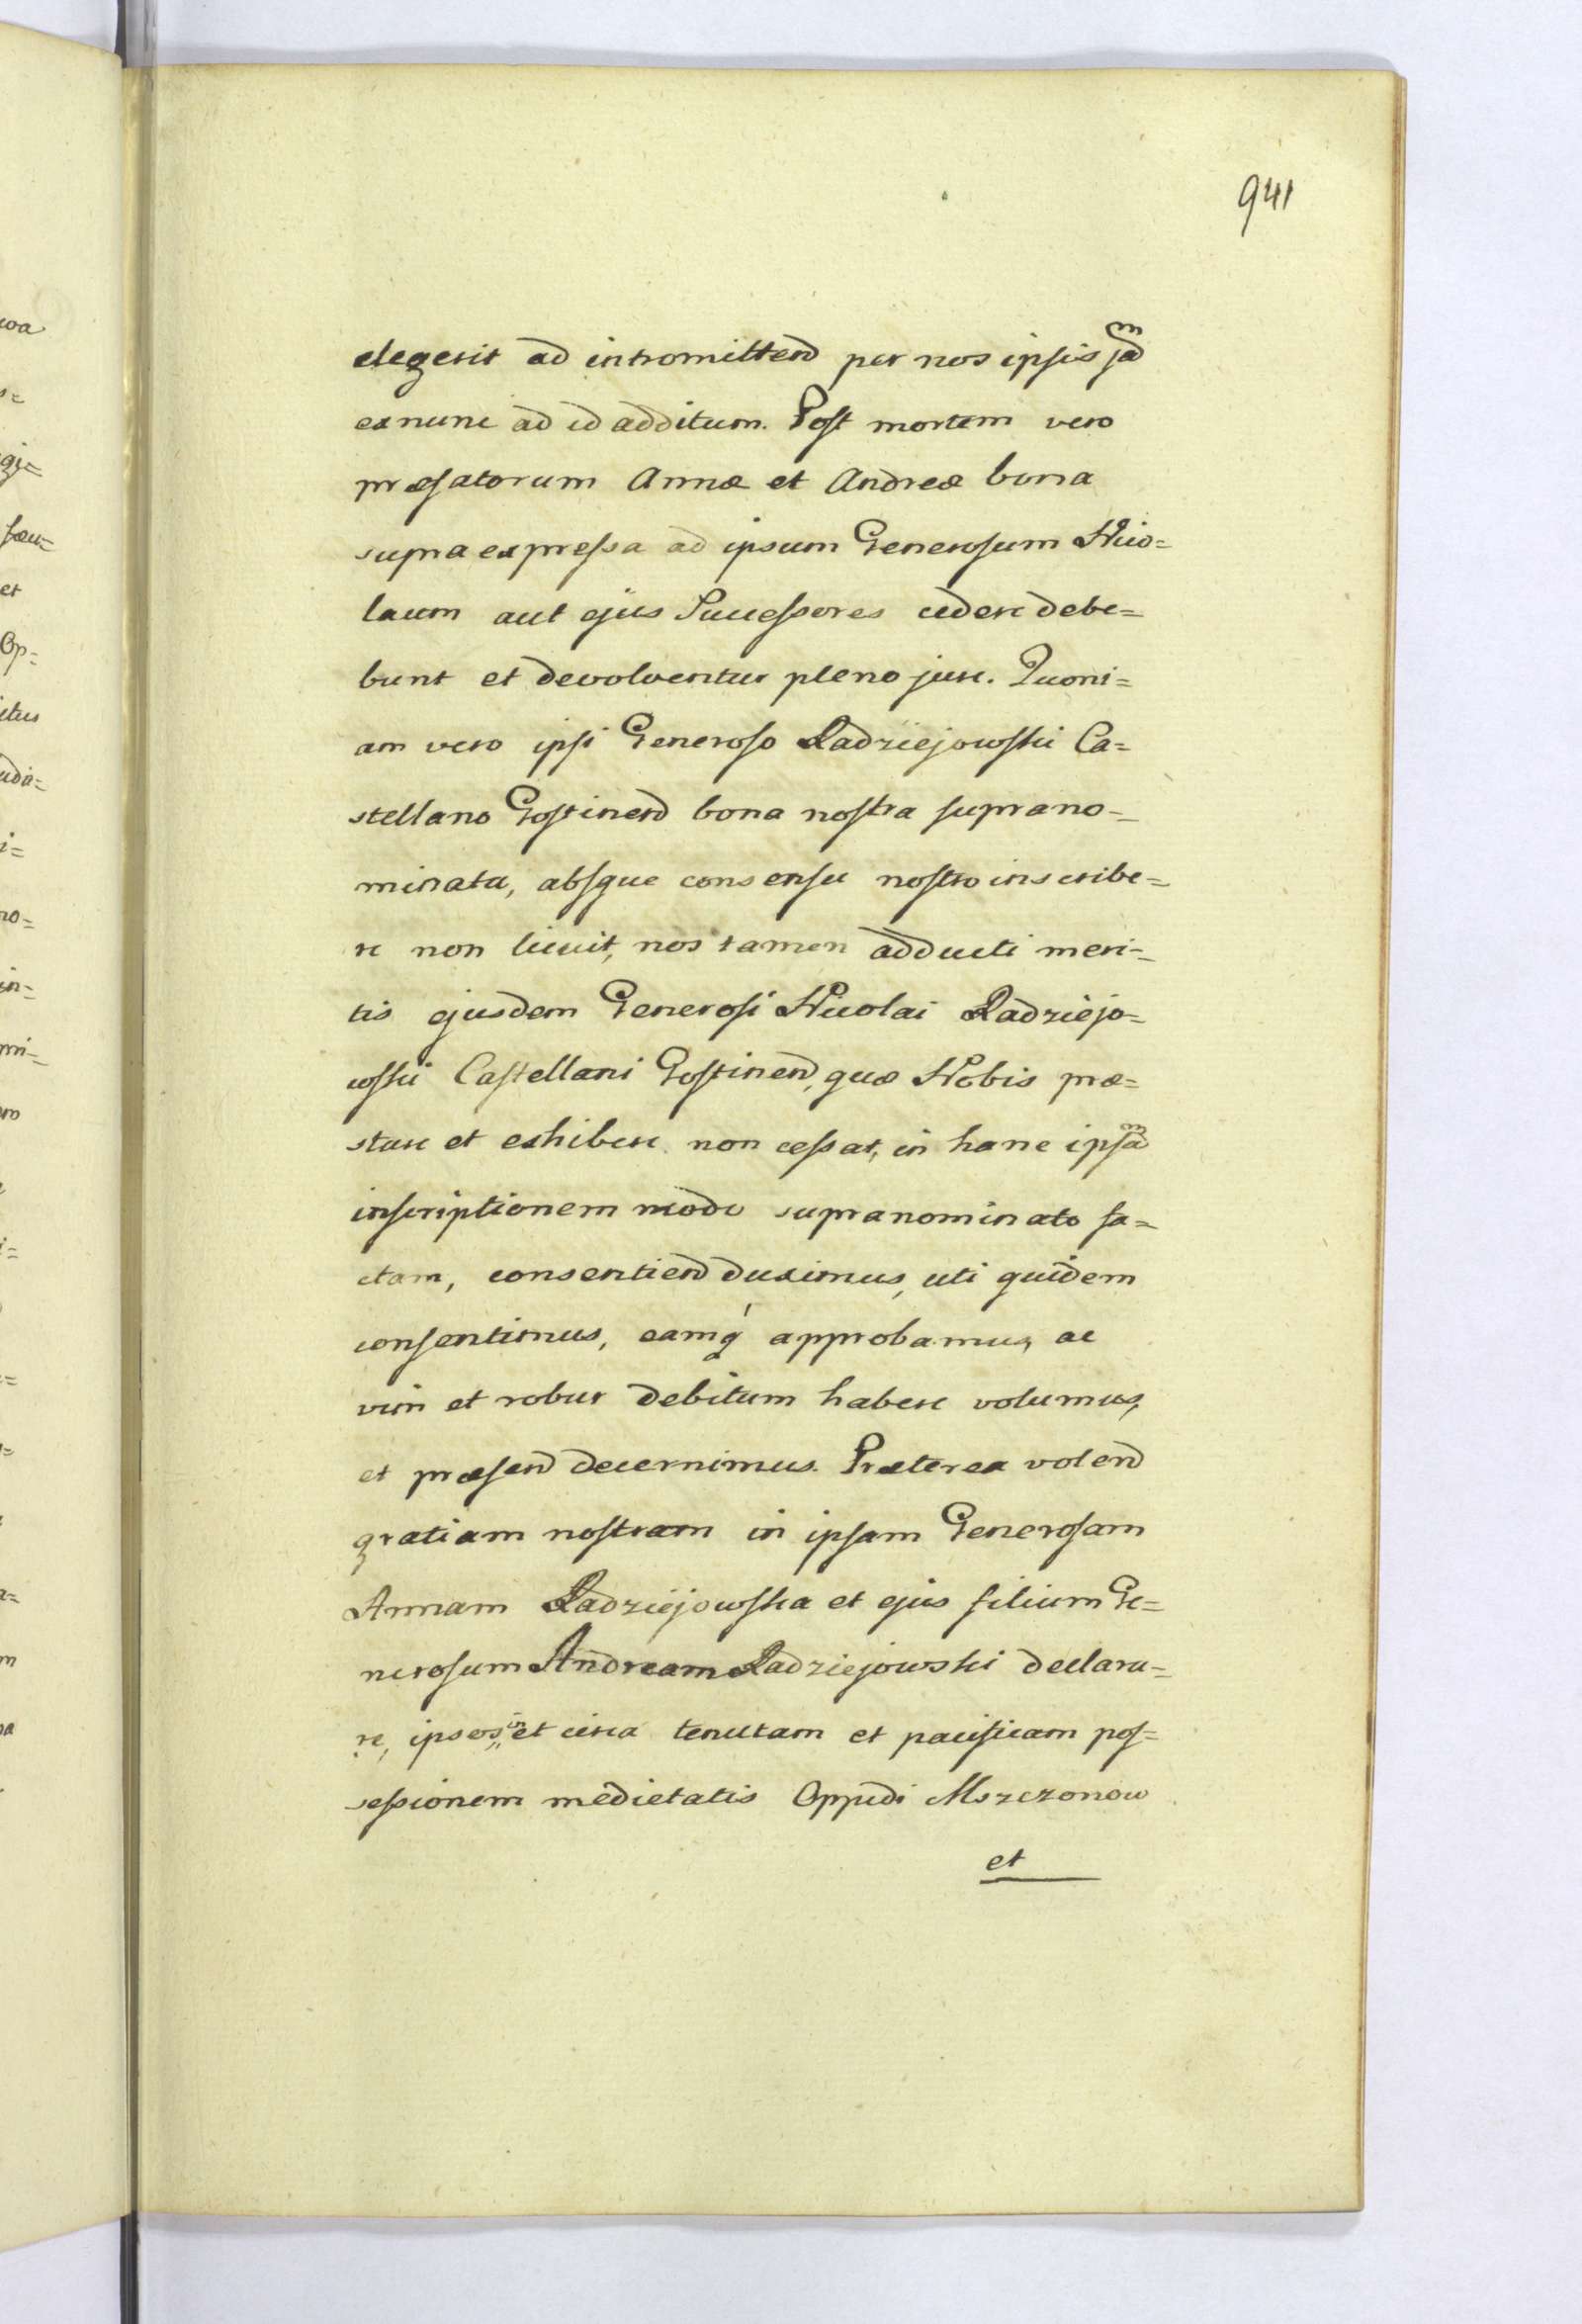 941
elegerit ad intromittend per nos ipsis jam
exnunc ad id additum. Post mortem vero
præfatorum Annæ et Andreæ bona
supra expressa ad ipsum Generosum Nico=
laum aut ejus Successores cedere debe=
bunt et devolventur pleno jure. Quoni=
am vero ipsi Generoso Radziejowski Ca=
stellano Gostinend bona nostra suprano=
minata, absque consensu nostro inscribe=
re non licuit, nos tamen adducti meri=
tis ejusdem Generosi Nicolai Radziejo=
wski Castellani Gostinend, quæ Nobis præ=
stare et exhibere non cessat, in hanc ipsam
inscriptionem modo supranominato fa=
ctam, consentiend duximus, uti quidem
consentimus, eamq́ approbamus, ac
vim et robur debitum habere volumus,
et præsend decernimus. Præterea volend
gratiam nostram in ipsam Generosam
Annam Radziejowska et ejus filium Ge=
nerosum Andream Radziejowski declara=
re, ipsos in et circa tenutam et pacificam pos=
sessionem medietatis Oppidi Mszczonow
et
wa
gi=
et
Op=
itus
udi=
i=
no=
in=
mi=